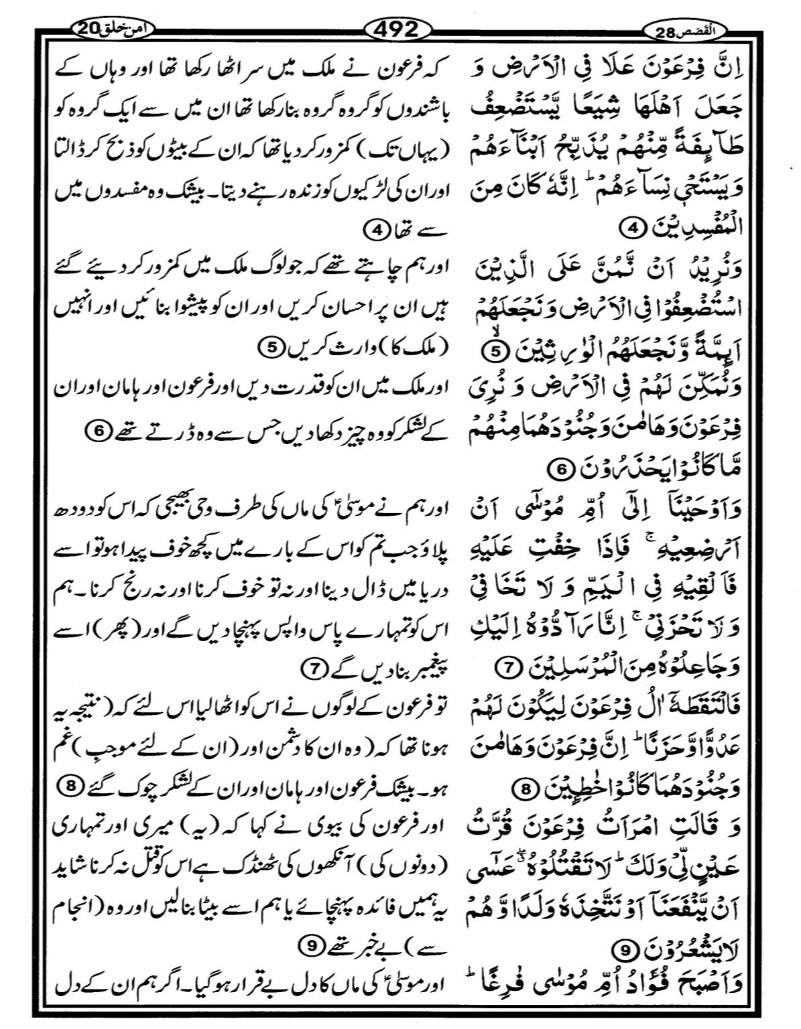 امن خلق 20
492
القصص 28
اِنَّ فِرْعَوْنَ عَلَا فِی الْاَرْضِ وَ
جَعَلَ اَهْلَهَا شِیَعًا یَّسْتَضْعِفُ
طَآىِٕفَةً مِّنْهُمْ یُذَبِّحُ اَبْنَآءَهُمْ
وَیَسْتَحْیٖ نِسَآءَهُمْ ؕ اِنَّهٗ كَانَ مِنَ
الْمُفْسِدِیْنَ 4
وَنُرِیْدُ اَنْ نَّمُنَّ عَلَی الَّذِیْنَ
اسْتُضْعِفُوْا فِی الْاَرْضِ وَنَجْعَلَهُمْ
اَىِٕمَّةً وَّنَجْعَلَهُمُ الْوٰرِثِیْنَ ۙ 5
وَنُمَكِّنَ لَهُمْ فِی الْاَرْضِ وَ نُرِیَ
فِرْعَوْنَ وَهَامٰنَ وَجُنُوْدَهُمَا مِنْهُمْ
مَّا كَانُوْا یَحْذَرُوْنَ 6
وَاَوْحَیْنَاۤ اِلٰۤی اُمِّ مُوْسٰۤی اَنْ
اَرْضِعِیْهِ ۚ فَاِذَا خِفْتِ عَلَیْهِ
فَاَلْقِیْهِ فِی الْیَمِّ وَ لَا تَخَافِیْ
وَلَا تَحْزَنِیْ ۚ اِنَّا رَآدُّوْهُ اِلَیْكِ
وَجَاعِلُوْهُ مِنَ الْمُرْسَلِیْنَ 7
فَالْتَقَطَهٗۤ اٰلُ فِرْعَوْنَ لِیَكُوْنَ لَهُمْ
عَدُوًّا وَّحَزَنًا ؕ اِنَّ فِرْعَوْنَ وَهَامٰنَ
وَجُنُوْدَهُمَا كَانُوْا خٰطِـِٕیْنَ 8
وَ قَالَتِ امْرَاَتُ فِرْعَوْنَ قُرَّتُ
عَیْنٍ لِّیْ وَلَكَ ؕ لَا تَقْتُلُوْهُ ۖۗ عَسٰۤی
اَنْ یَّنْفَعَنَاۤ اَوْ نَتَّخِذَهٗ وَلَدًا وَّ هُمْ
لَا یَشْعُرُوْنَ 9
وَاَصْبَحَ فُؤَادُ اُمِّ مُوْسٰی فٰرِغًا ؕ
کہ فرعون نے ملک میں سر اٹھا رکھا تھا اور وہاں کے
باشندوں کو گروہ گروہ بنا رکھا تھا ان میں سے ایک گروہ کو
(یہاں تک) کمزور کر دیا تھا کہ ان کے بیٹوں کو ذبح کر ڈالتا
اور ان کی لڑکیوں کو زندہ رہنے دیتا۔ بیشک وہ مفسدوں میں
سے تھا 4
اور ہم چاہتے تھے کہ جو لوگ ملک میں کمزور کر دیئے گئے
ہیں ان پر احسان کریں اور ان کو پیشوا بنائیں اور انہیں
(ملک کا) وارث کریں 5
اور ملک میں ان کو قدرت دیں اور فرعون اور ہامان اور ان
کے لشکر کو وہ چیز دکھا دیں جس سے وہ ڈرتے تھے 6
اور ہم نے موسیٰؑ کی ماں کی طرف وحی بھیجی کہ اس کو دودھ
پلاؤ جب تم کو اس کے بارے میں کچھ خوف پیدا ہو تو اسے
دریا میں ڈال دینا اور نہ تو خوف کرنا اور نہ رنج کرنا ۔ ہم
اس کو تمہارے پاس واپس پہنچا دیں گے اور (پھر) اسے
پیغمبر بنا دیں گے 7
تو فرعون کے لوگوں نے اس کو اٹھا لیا اس لئے کہ (نتیجہ یہ
ہونا تھا کہ) وہ ان کا دشمن اور (ان کے لئے موجبِ) غم
ہو۔ بیشک فرعون اور ہامان اور ان کے لشکر چوک گئے 8
اور فرعون کی بیوی نے کہا کہ (یہ) میری اور تمہاری
(دونوں کی) آنکھوں کی ٹھنڈک ہے اس کو قتل نہ کرنا شاید
یہ ہمیں فائدہ پہنچائے یا ہم اسے بیٹا بنا لیں اور وہ (انجام
سے) بے خبر تھے 9
اور موسیٰؑ کی ماں کا دل بے قرار ہو گیا۔ اگر ہم ان کے دل